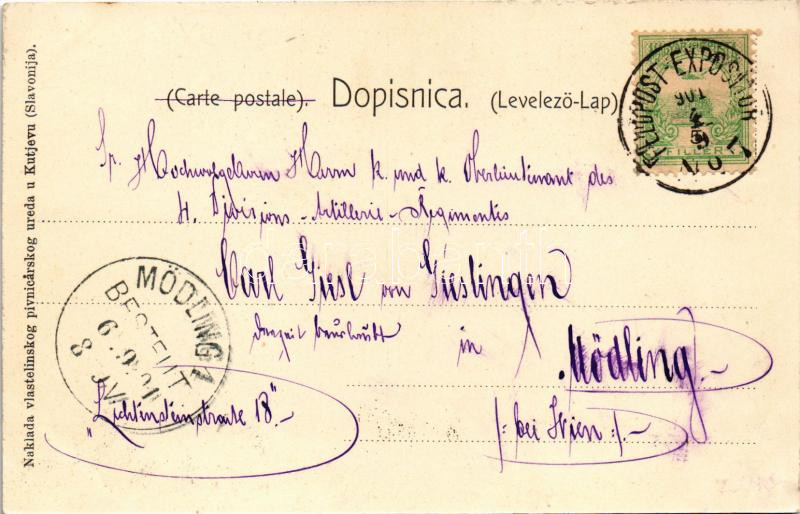 (Carte postale). Dopisnica. (Levelező-Lap)
FELDPOST-EXPOSITUR
901
FILLÉR
No 7
Sr. Hochwohlgeboren Herrn k. und k. Oberleutenant des
4. Divisions-Artillerie-Regimentes
Carl Giesl von Gieslingen
derzeit beurlaubt in Mödling.-
„Lichtensteinstrasse 18".-
/: bei Wien :/.-
MÖDLING 1
BESTELLT
6.9.01
8 V
Naklada vlastelinskog pivničarskog ureda u Kutjevu (Slavonija).